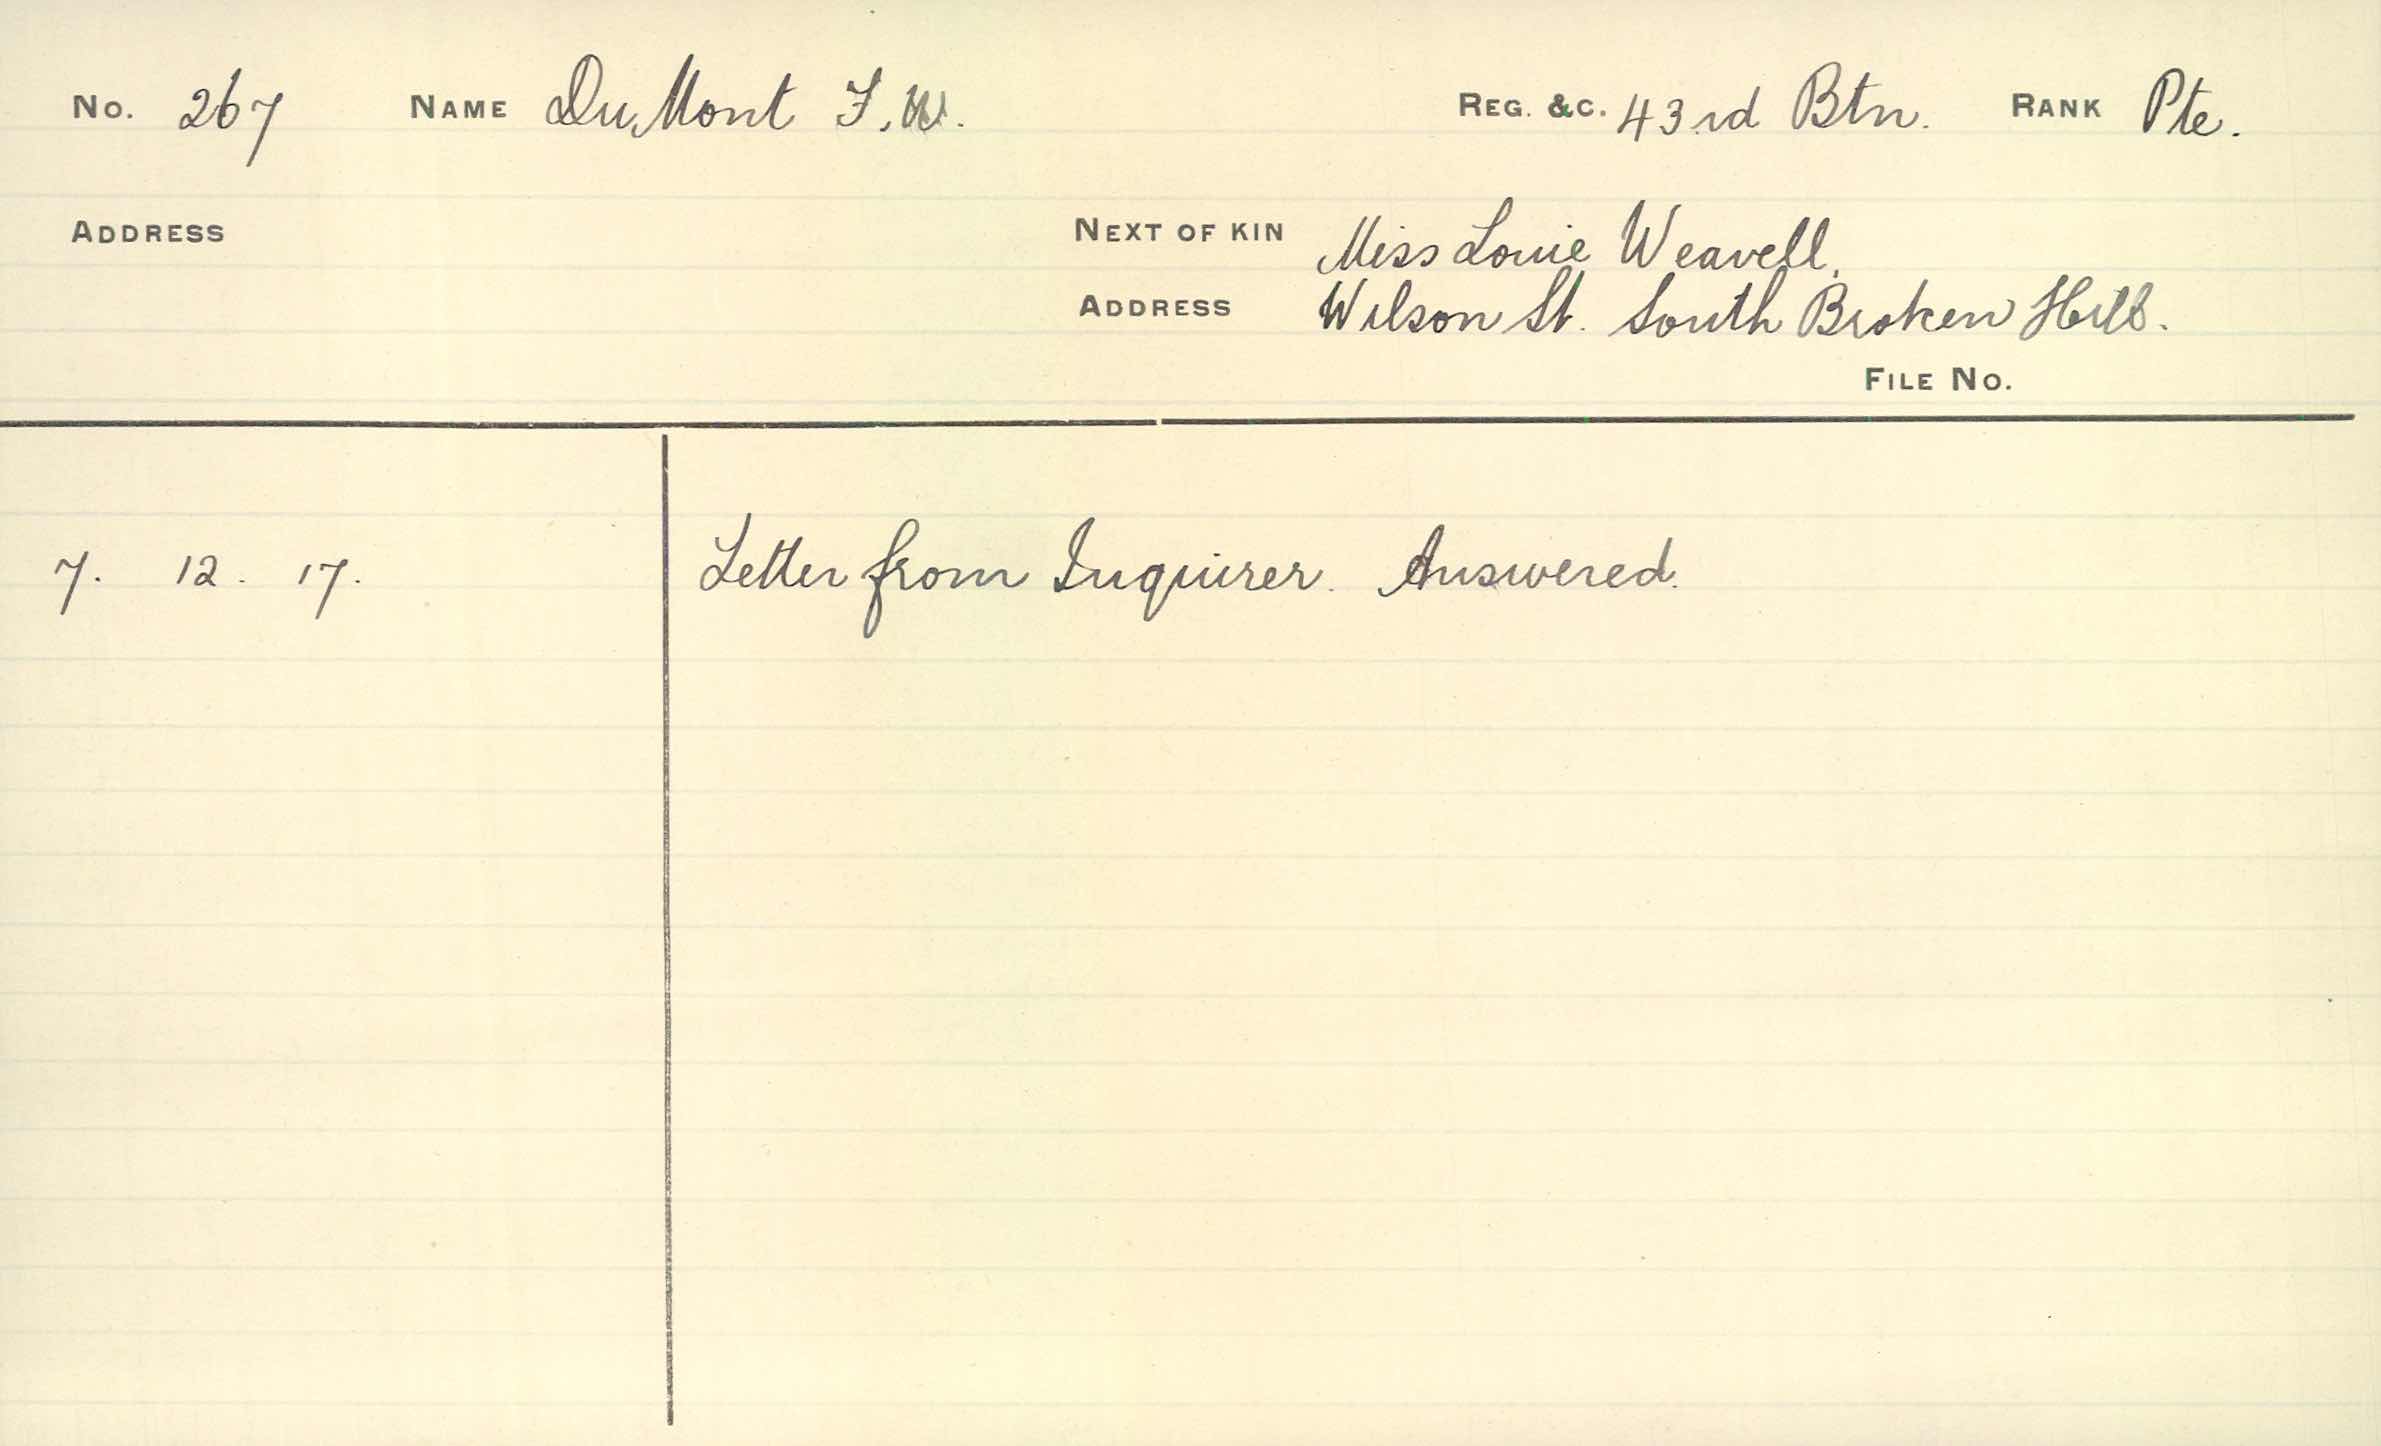 No. 267 NAME DuMont F.W. REG. &C. 43rd Btn. RANK Pte.
ADDRESS NEXT OF KIN Miss Louie Weavell.
ADDRESS Wilson St. South Broken Hill.
FILE No.
7. 12. 17. Letter from Inquirer. Answered.